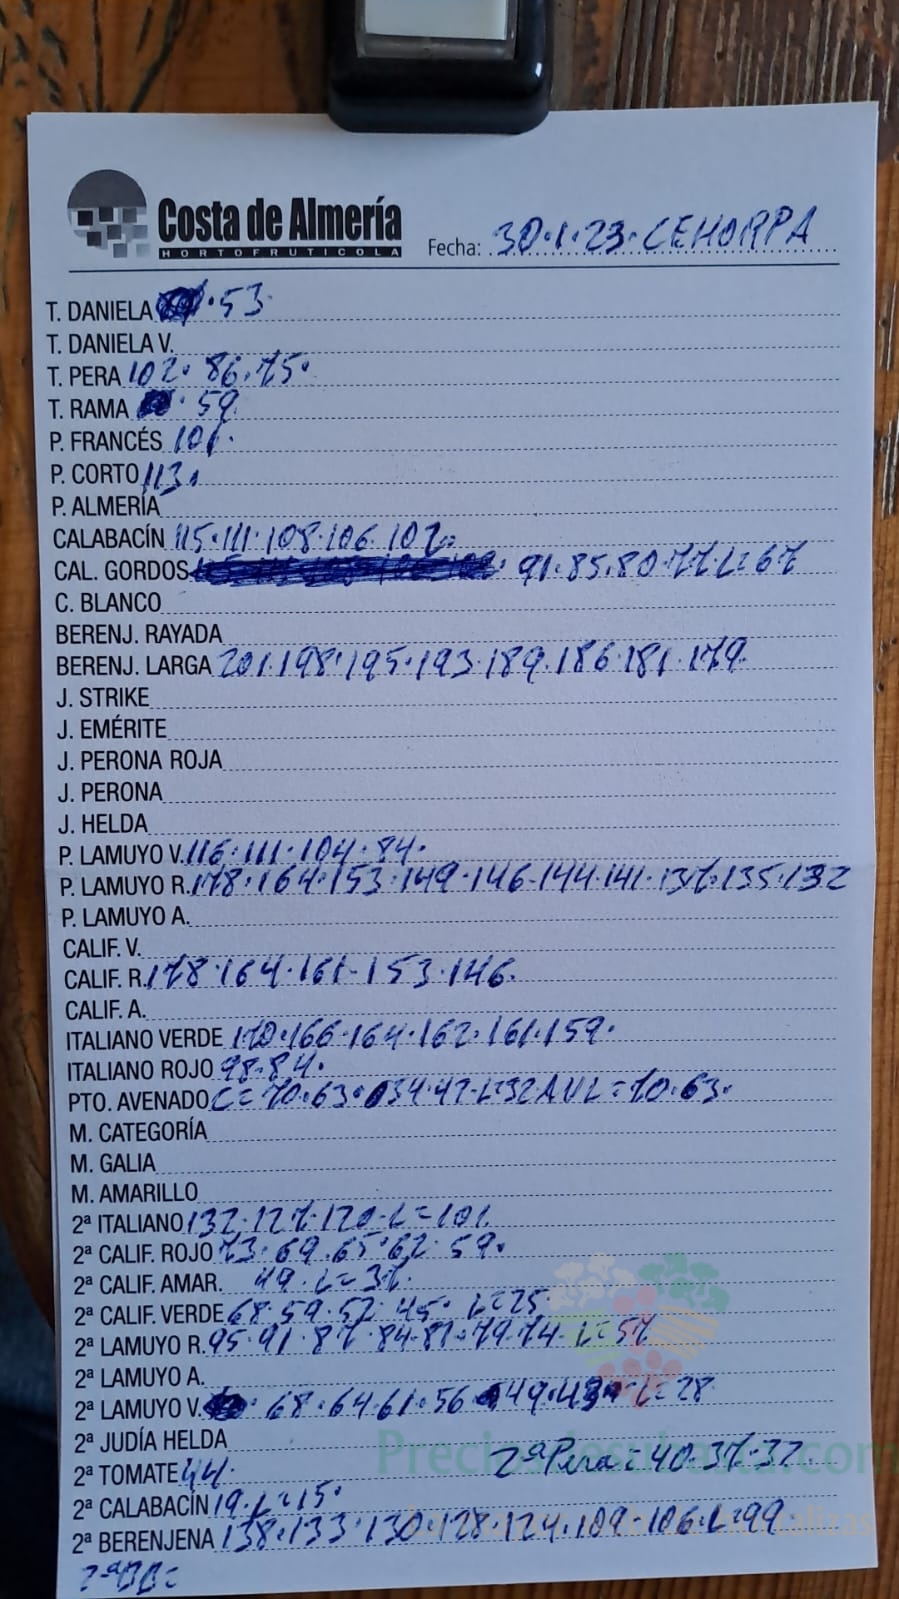 Costa de Almería
HORTOFRUTICOLA
Fecha: 30.1.23. CEHORPA
T. DANIELA . 53
T. DANIELA V.
T. PERA 102. 86. 75.
T. RAMA . 59
P. FRANCÉS 101.
P. CORTO 113.
P. ALMERÍA
CALABACÍN 115.111.108.106.102.
CAL. GORDOS 91.85.80.77.L=67
C. BLANCO
BERENJ. RAYADA
BERENJ. LARGA 201.198.195.193.189.186.181.179.
J. STRIKE
J. EMÉRITE
J. PERONA ROJA
J. PERONA
J. HELDA
P. LAMUYO V. 116.111.104.84.
P. LAMUYO R. 178.164.153.149.146.144.141.137.135.132
P. LAMUYO A.
CALIF. V.
CALIF. R. 178.164.161-153.146.
CALIF. A.
ITALIANO VERDE 170.166.164.162.161.159.
ITALIANO ROJO 98-84.
PTO. AVENADO C=70.63. 34.47-L=32 AVL=70.63.
M. CATEGORÍA
M. GALIA
M. AMARILLO
2ª ITALIANO 132.127.120-L=101
2ª CALIF. ROJO 73.69.65.62.59.
2ª CALIF. AMAR. 49. L=37.
2ª CALIF. VERDE 68.59.52.45. L=25
2ª LAMUYO R. 95.91.87.84-81.79.74-L=57
2ª LAMUYO A.
2ª LAMUYO V. . 68.64.61.56 49.43 L=28
2ª JUDÍA HELDA
Preciosdesubasta.com
2ª TOMATE 44. 2ª Pera=40.37.32
2ª CALABACÍN 19.L=15.
2ª BERENJENA 138.133.130.128.124.109.106.L=99